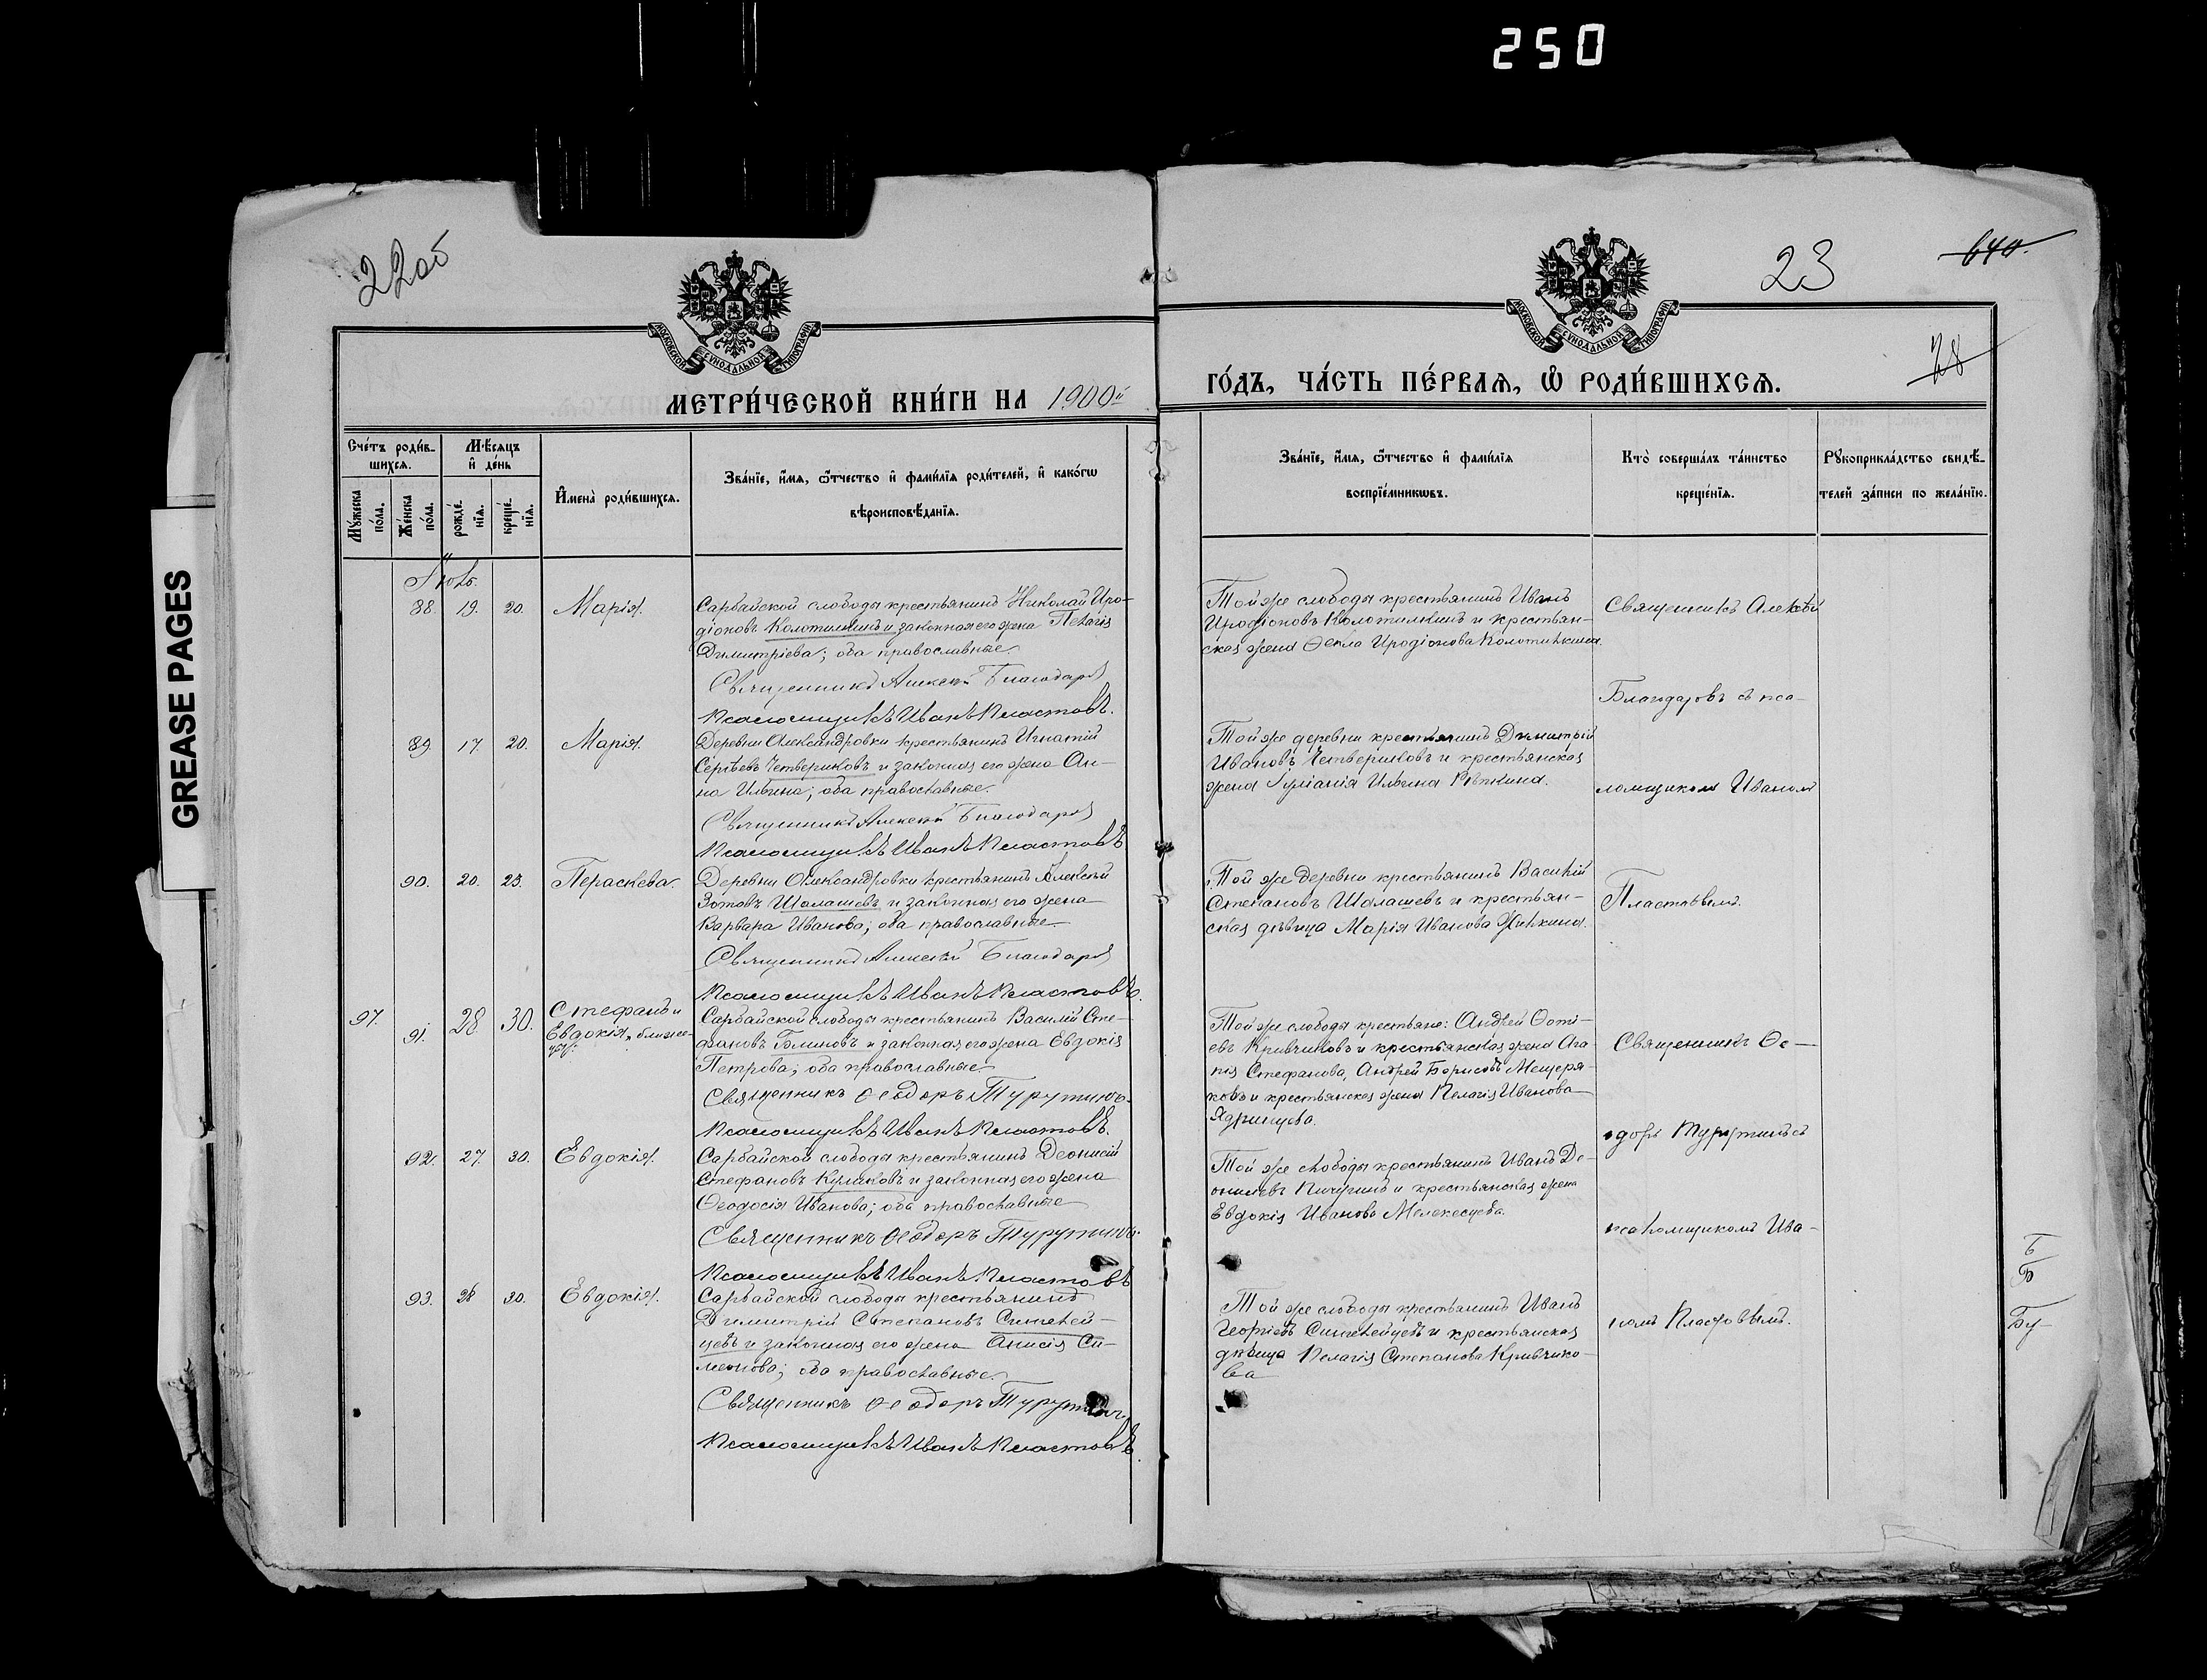 250
22 об
23
640.
28
МОСКОВСКОЙ СѴНОДАЛЬНОЙ ТИПОГРАФІИ
МОСКОВСКОЙ СѴНОДАЛЬНОЙ ТИПОГРАФІИ
МЕТРИ́ЧЕСКОЙ КНИ́ГИ НА 1900й
ГО́ДЪ, ЧА́СТЬ ПЕ́РВАѦ, Ѡ҆ РОДИ́ВШИХСѦ.
GREASE PAGES
Сче́тъ роди́в-
шихсѧ.
Мꙋ́жеска
по́ла.
Же́нска
по́ла.
Мѣ́сѧцъ
и҆ де́нь
рожде́-
нїѧ.
креще́-
нїѧ.
И҆мена̀ роди́вшихсѧ.
Зва́нїе, и҆́мѧ, ѻ҆́тчество и҆ фами́лїѧ роди́телей, и҆ како́гѡ
вѣроисповѣ́данїѧ.
Зва́нїе, и҆́мѧ, ѻ҆́тчество и҆ фами́лїѧ
воспрїе́мникѡвъ.
Кто̀ соверша́лъ та́инство
креще́нїѧ.
Рꙋкоприкла́дство свидѣ́-
телей за́писи по жела́нїю.
Іюль.
88. 19. 20. Марія.
Сарбайской слободы крестьянинъ Николай Иро-
діоновъ Колотилкинъ и законная его жена Пелагія
Димитріева; оба православные.
Священникъ Алексѣй Благодаров
Псаломщикъ Иванъ Пластовъ.
Той же слободы крестьянинъ Иванъ
Иродіоновъ Колотилкинъ и крестьян-
ская жена Ѳекла Иродіонова Колотилкина.
Священникъ Алексѣй
Благодаровъ съ пса-
89. 17. 20. Марія.
Деревни Александровки крестьянинъ Игнатій
Сергѣевъ Четвериковъ и законная его жена Ан-
на Ильина; оба православные.
Священникъ Алексѣй Благодаров
Псаломщикъ Иванъ Пластовъ
Той же деревни крестьянинъ Димитрій
Ивановъ Четвериковъ и крестьянская
жена Іуліанія Ильина Рѣпкина.
ломщиком Иваном
90. 20. 23. Параскева.
Деревни Александровки крестьянинъ Алексѣй
Зотовъ Шалашевъ и законная его жена
Варвара Иванова; оба православные.
Священникъ Алексѣй Благодаров
Псаломщикъ Иванъ Пластовъ.
Той же деревни крестьянинъ Василій
Степановъ Шалашевъ и крестьян-
ская дѣвица Марія Иванова
Пластовымъ.
97. 91. 28 30. Стефанъ и
Евдокія, близне-
цы.
Сарбайской слободы крестьянинъ Василій Сте-
фановъ Блиновъ и законная его жена Евдокія
Петрова; оба православные.
Священникъ Ѳеодоръ Турутинъ.
Псаломщикъ Иванъ Пластовъ.
Той же слободы крестьяне: Андрей Фоті-
евъ Кривчиковъ и крестьянская жена Ага-
пія Стефанова, Андрей Борисовъ Мещеря-
ковъ и крестьянская жена Пелагія Иванова
Ядринцева.
Священникъ Ѳе-
одоръ Турутинъ съ
92. 27. 30. Евдокія.
Сарбайской слободы крестьянинъ Деонисій
Стефановъ Куликовъ и законная его жена
Ѳеодосія Иванова; оба православные
Священникъ Ѳеодоръ Турутинъ.
Псаломщикъ Иванъ Пластовъ
Той же слободы крестьянинъ Иванъ Де-
онисіевъ Пичугинъ и крестьянская жена
Евдокія Иванова Мелекесцева.
псаломщикомъ Ива-
93. 28 30. Евдокія.
Сарбайской слободы крестьянинъ
Димитрій Степановъ Сингилей-
цевъ и законная его жена Анисія Си-
меонова; оба православные.
Священникъ Ѳеодоръ Турутинъ
Псаломщикъ Иванъ Пластовъ
Той же слободы крестьянинъ Иванъ
Георгіевъ Сингилейцевъ и крестьянская
дѣвица Пелагія Степанова Кривчико-
ва
номъ Пластовымъ.